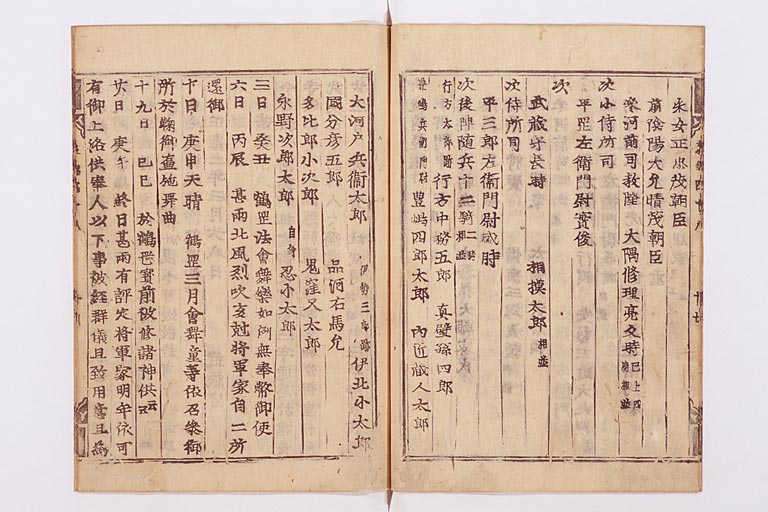 采女正忠茂朝臣
前陰陽大允晴茂朝臣
参河前司教隆 大隅修理亮久時 已上四騎相並
次小侍所司
平岡左衛門尉實俊
次
武蔵守長時 相模太郎 相並
次侍所司
平三郎左衛門尉盛時
次後陣随兵十二騎 二騎相並
行方太郎跡 行方中務五郎 真壁孫四郎
豊嶋兵衛門尉 豊嶋四郎太郎 内近蔵人太郎
大河戸兵衛太郎 伊勢三郎跡 伊北小太郎
國分彦五郎 品河右馬允
多比郎小次郎 鬼窪又太郎
永野次郎太郎 自身 忍小太郎
三日 癸丑 鶴岡法會舞樂如例無奉幣御使
六日 丙辰 甚雨北風烈吹亥尅将軍家自二所
還御
十日 庚申天晴 鶴岡三月會舞童等依召参御
所於鞠御壷施舞曲
十九日 己巳 於鶴岡寳前被修諸神供云云
廿日 庚午 終日甚雨有評定将軍家明年依可
有御上洛供奉人以下事被経群儀且致用意且為